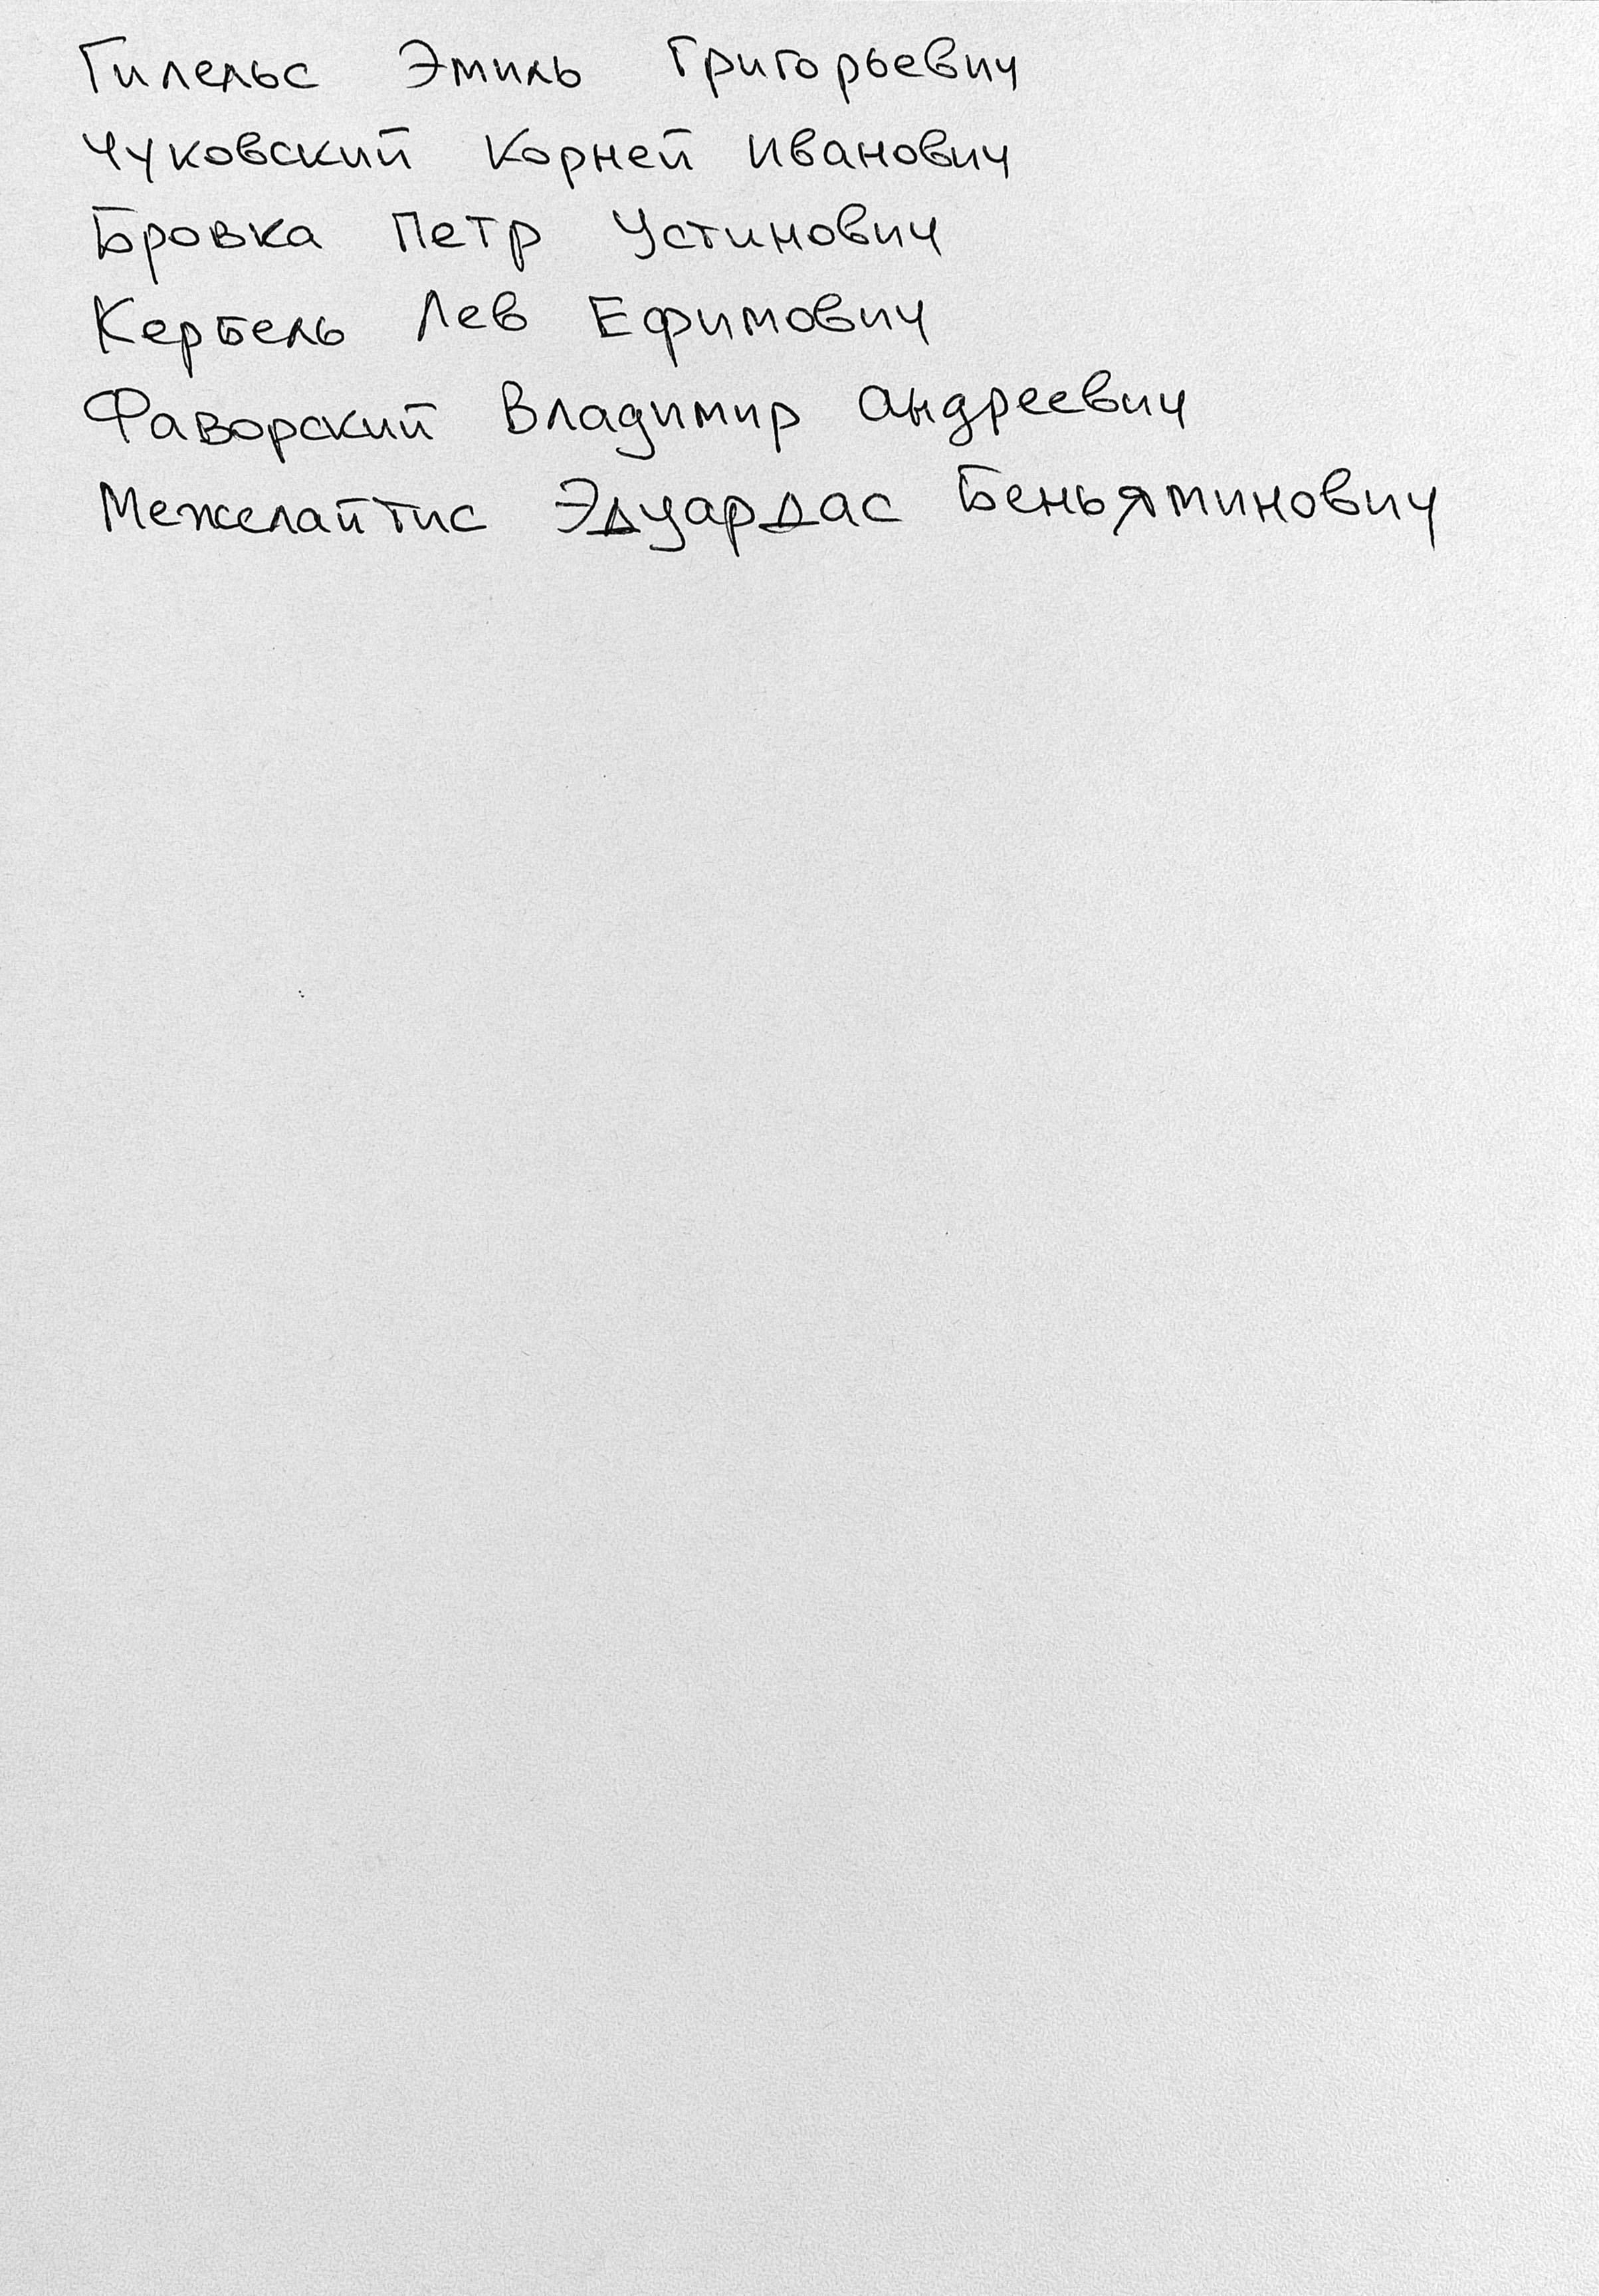 Гилельс Эмиль Григорьевич
Чуковский Корней Иванович
Бровка Петр Устинович
Кербель Лев Ефимович
Фаворский Владимир Андреевич
Межелайтис Эдуардас Беньяминович